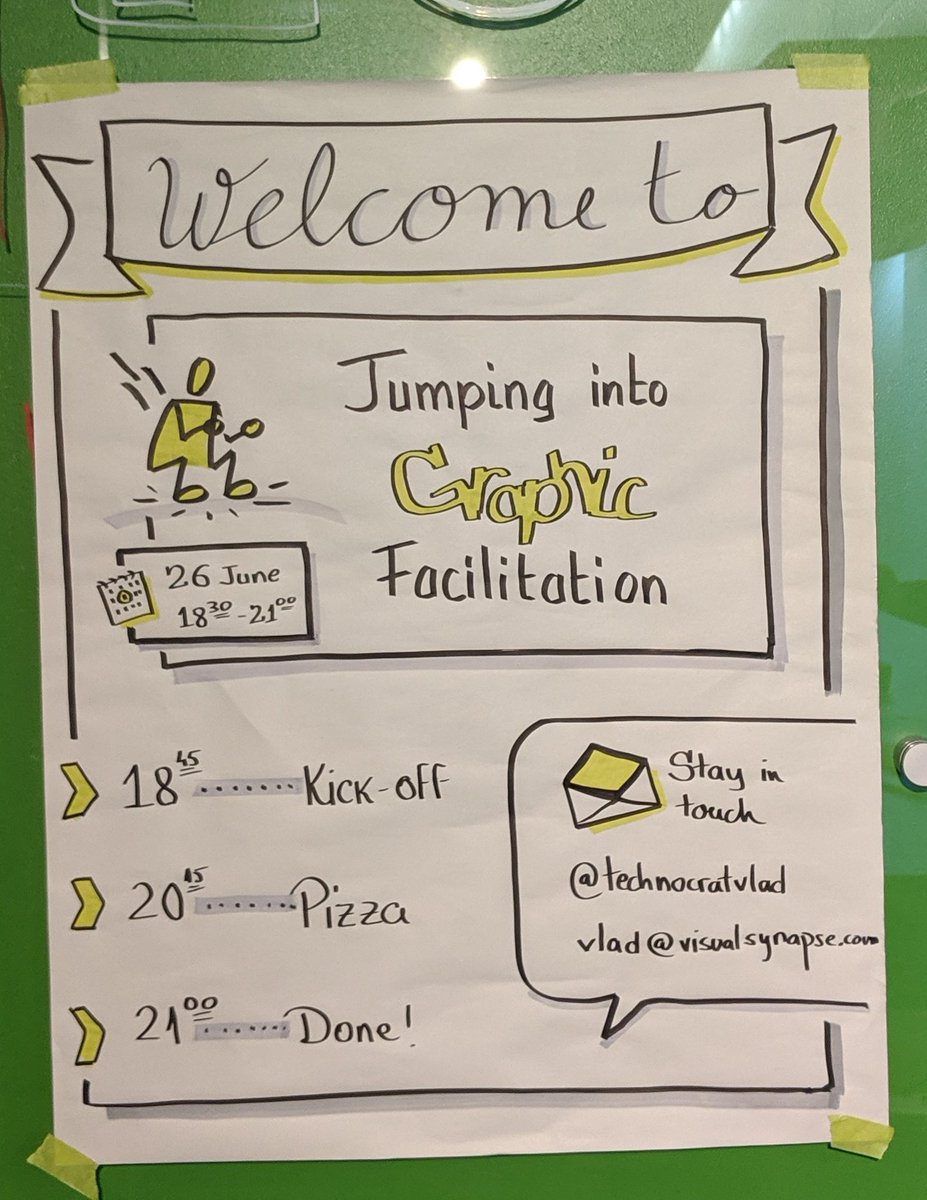 Welcome to
Jumping into
Graphic
Facilitation
26 June
18³⁰-21⁰⁰
18⁴⁵ ....... Kick-off
20⁴⁵ ....... Pizza
21⁰⁰ ....... Done!
Stay in
touch
@technocratvlad
vlad@visualsynapse.com